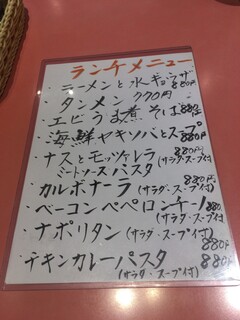 ランチメニュー
・ラーメンと水ギョウザ 880円
・タンメン 770円
・エビうま煮そば 880円
・海鮮ヤキソバとスープ 880円
・ナスとモッツァレラ 880円
ミートソースパスタ (サラダ・スープ付)
・カルボナーラ 880円 (サラダ・スープ付)
・ベーコンペペロンチーノ 880円
(サラダ・スープ付)
・ナポリタン (サラダ・スープ付) 880円
・チキンカレーパスタ 880円
(サラダ・スープ付)